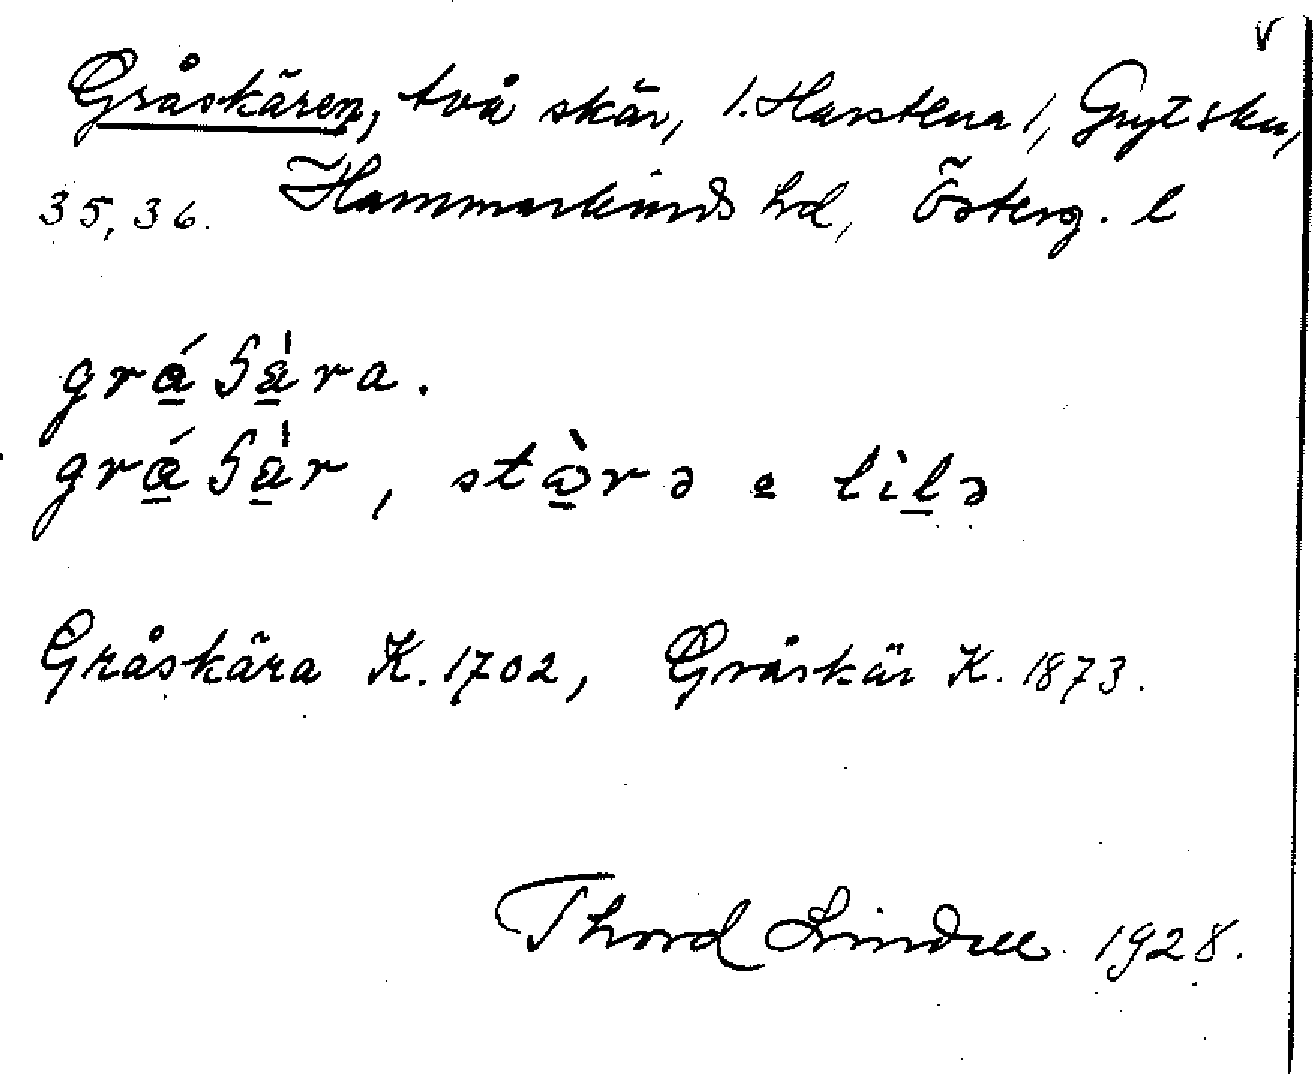 v
Gråskären, två skär, 1. Harstena 1, Gryt skn,
35, 36. Hammarkinds hd, Österg. l
grá̱ ʂä̱̀ra.
grá̱ ʂä̱̀r, stɷ̱̀rə e̱ lìḻə
Gråskära K. 1702, Gråskär K. 1873.
Thord Lindell 1928.